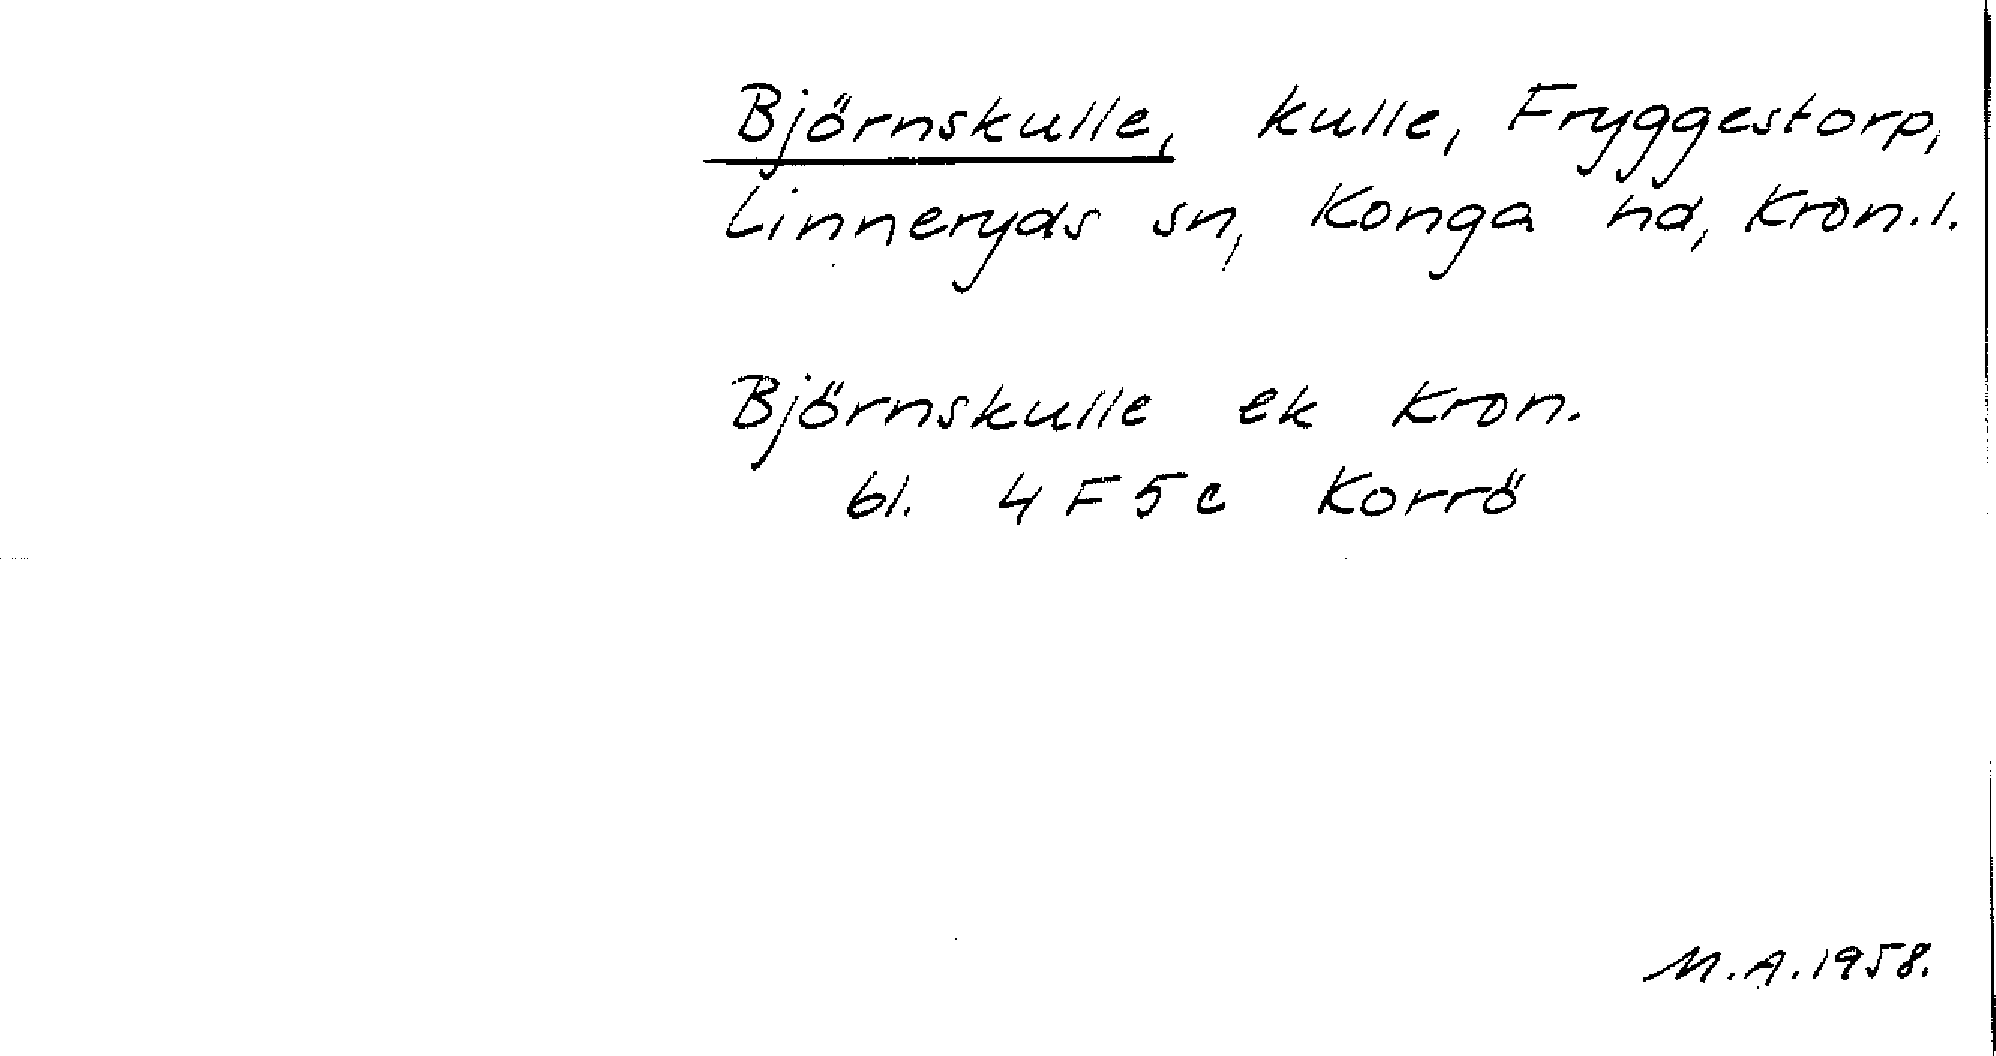 Björnskulle, kulle, Fryggestorp,
Linneryds sn, Konga hd, Kron.l.
Björnskulle ek Kron.
bl. 4 F 5 c Korrö
M.A. 1958.